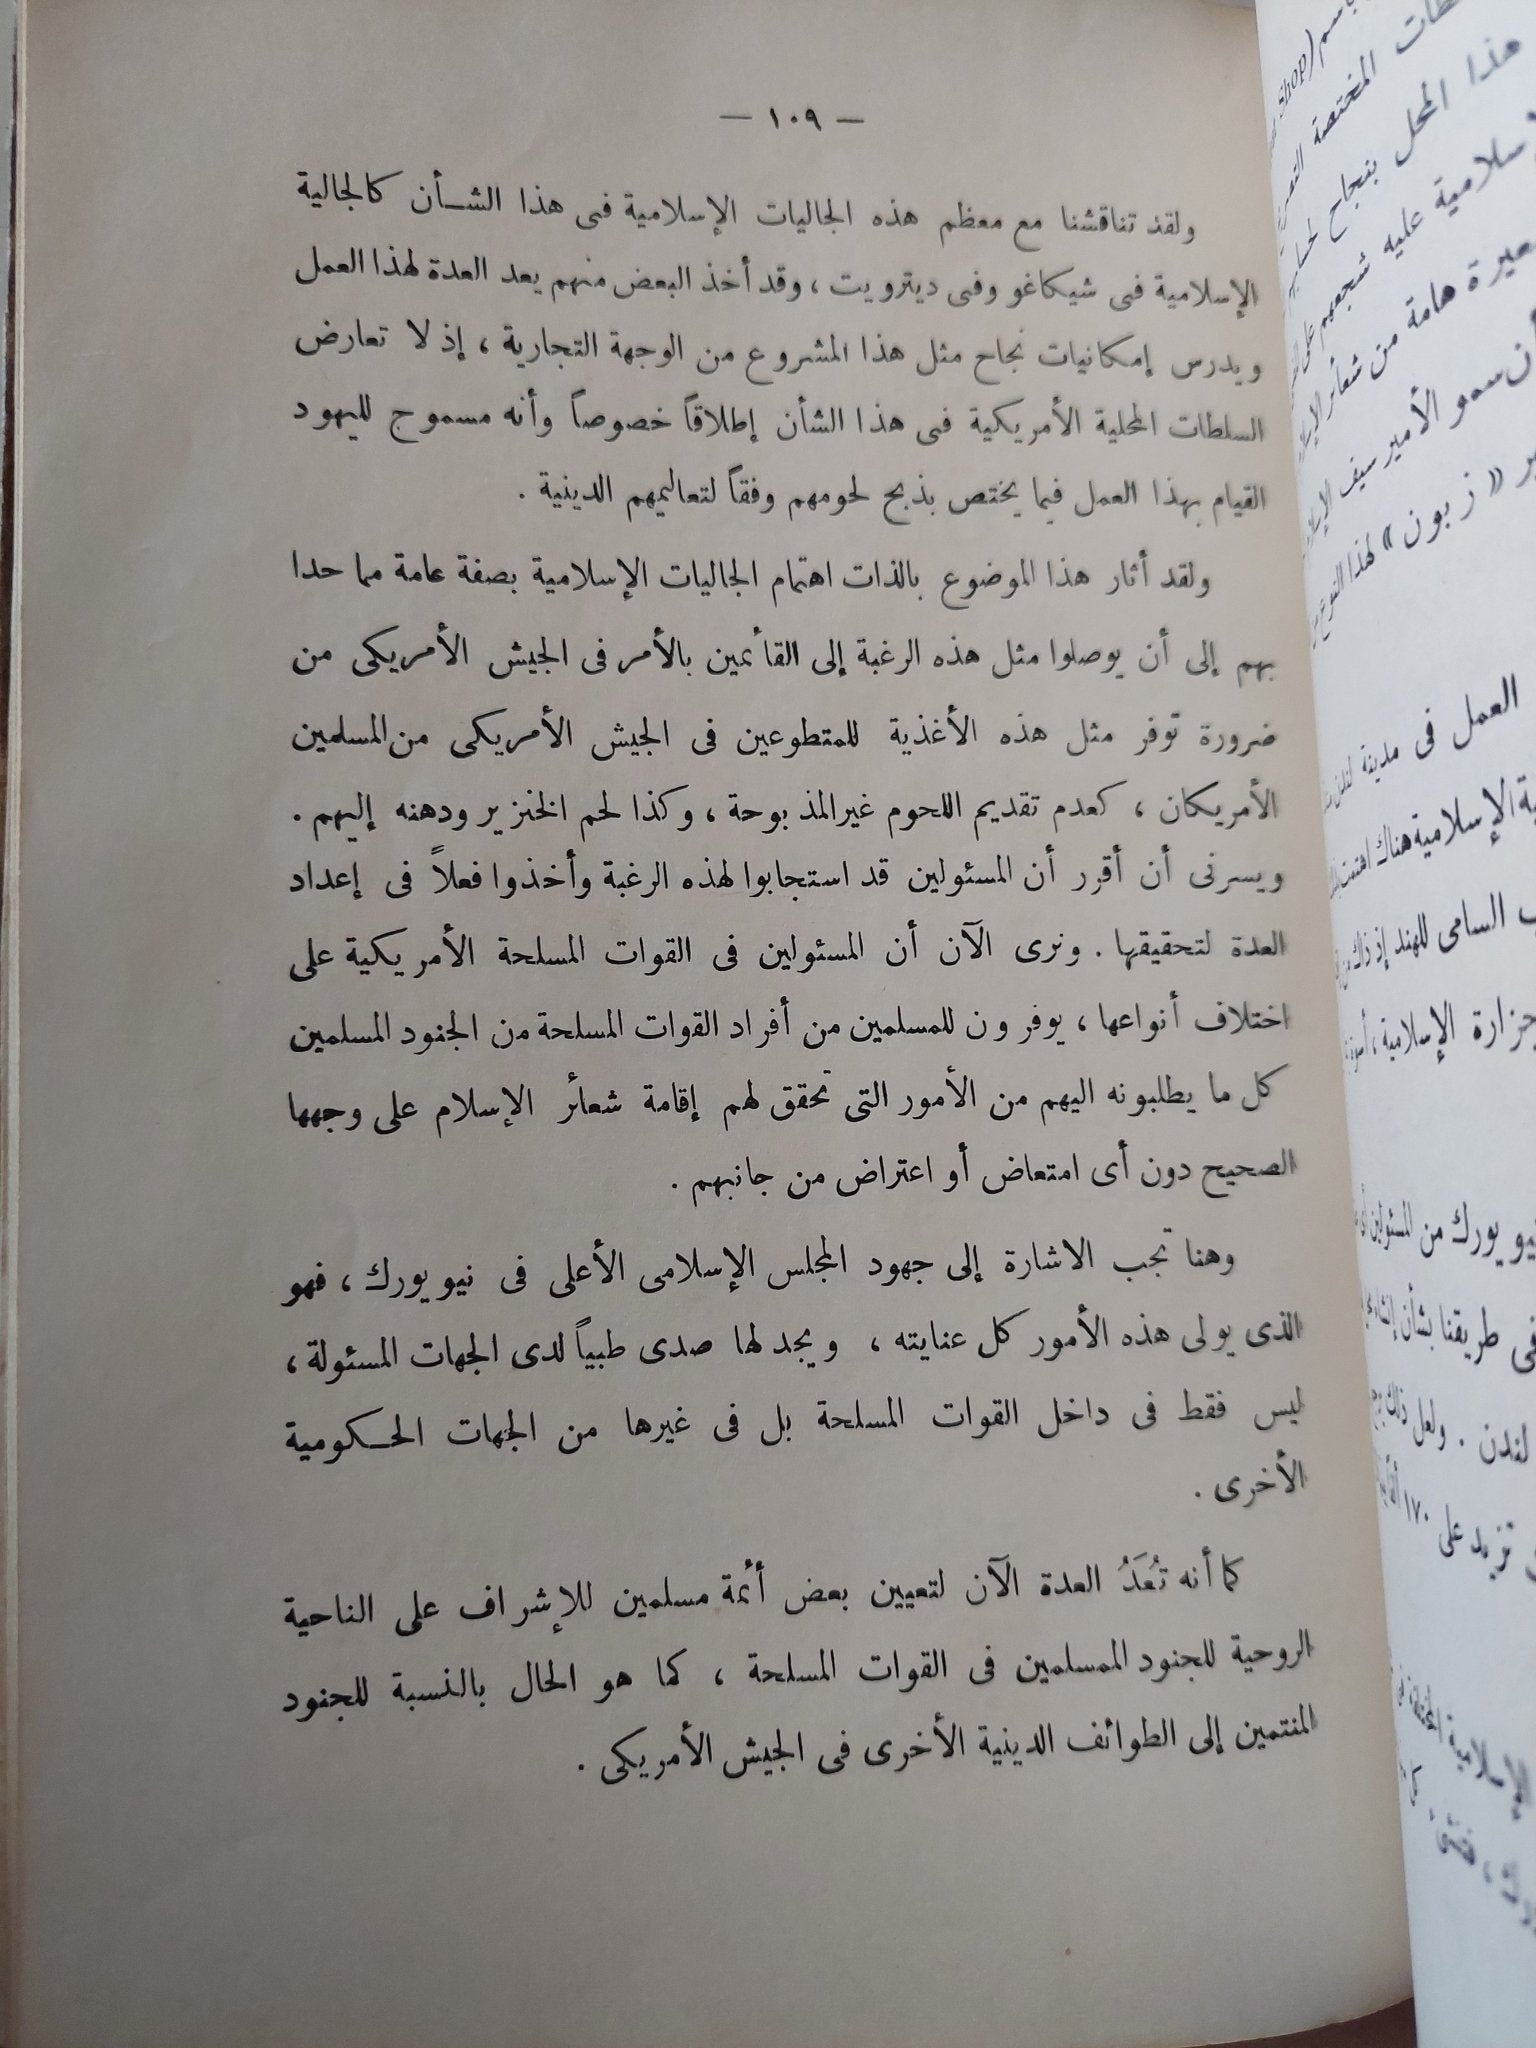 — ١٠٩ —
ولقد تناقشنا مع معظم هذه الجاليات الإسلامية فى هذا الشـأن كالجالية
الإسلامية فى شيكاغو وفى ديترويت ، وقد أخذ البعض منهم يعد العدة لهذا العمل
ويدرس إمكانيات نجاح مثل هذا المشروع من الوجهة التجارية ، إذ لا تعارض
السلطات المحلية الأمريكية فى هذا الشأن إطلاقاً خصوصاً وأنه مسموح لليهود
القيام بهذا العمل فيما يختص بذبح لحومهم وفقاً لتعاليمهم الدينية .
ولقد أثار هذا الموضوع بالذات اهتمام الجاليات الإسلامية بصفة عامة مما حدا
بهم إلى أن يوصلوا مثل هذه الرغبة إلى القائمين بالأمر فى الجيش الأمريكى من
ضرورة توفر مثل هذه الأغذية للمتطوعين فى الجيش الأمريكى من المسلمين
الأمريكان ، كعدم تقديم اللحوم غير المذبوحة ، وكذا لحم الخنزير ودهنه إليهم .
ويسرنى أن أقرر أن المسئولين قد استجابوا لهذه الرغبة وأخذوا فعلاً فى إعداد
العدة لتحقيقها . ونرى الآن أن المسئولين فى القوات المسلحة الأمريكية على
اختلاف أنواعها ، يوفرون للمسلمين من أفراد القوات المسلحة من الجنود المسلمين
كل ما يطلبونه اليهم من الأمور التى تحقق لهم إقامة شعائر الإسلام على وجهها
الصحيح دون أى امتعاض أو اعتراض من جانبهم .
وهنا تجب الاشارة إلى جهود المجلس الإسلامى الأعلى فى نيويورك ، فهو
الذى يولى هذه الأمور كل عنايته ، ويجد لها صدى طبياً لدى الجهات المسئولة ،
ليس فقط فى داخل القوات المسلحة بل فى غيرها من الجهات الحـكومية
الأخرى .
كما أنه تُعَدُ العدة الآن لتعيين بعض أئمة مسلمين للإشراف على الناحية
الروحية للجنود الممسلمين فى القوات المسلحة ، كما هو الحال بالنسبة للجنود
المنتمين إلى الطوائف الدينية الأخرى فى الجيش الأمريكى .
باسم (Shop
المختصة
هذا المحل بنجاح
الإسلامية عليه شجعهم على
هامة من شعائر
سمو الأمير سيف
« زبون » لهذا النوع
العمل فى مدينة
الإسلامية هناك
السامى للهند إذ ذاك
الإسلامية ، أسوة
نيويورك من المسئولين
فى طريقنا بشأن
لندن . ولعل ذلك
تزيد على ١٧٠